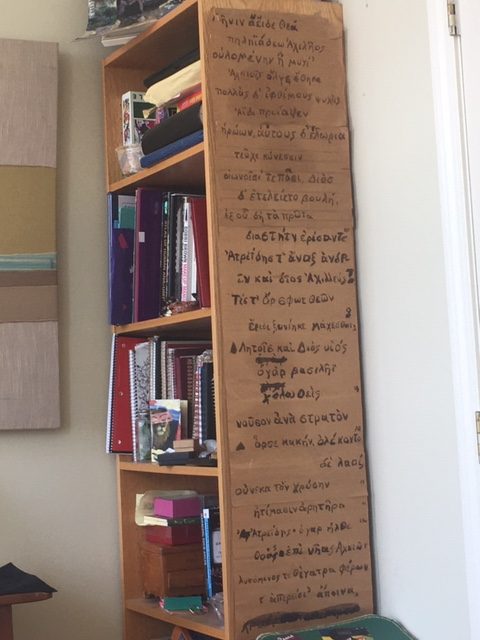 μῆνιν ἄειδε θεὰ
πηληϊάδεω Ἀχιλῆος
οὐλομένην ἣ μυρί'
Ἀχαιοῖς ἄλγε' ἔθηκε
πολλὰς δ' ἰφθίμους ψυχὰς
Ἄϊδι προΐαψεν
ἡρώων, αὐτοὺς δ' ἑλώρια
τεῦχε κύνεσσιν
οἰωνοῖσί τε πᾶσι, Διὸς
δ' ἐτελείετο βουλή,
ἐξ οὗ δὴ τὰ πρῶτα
διαστήτην ἐρίσαντε
Ἀτρεΐδης τ' ἄναξ ἀνδρ
ῶν καὶ δῖος Ἀχιλλεύς
Τίς τ' ἄρ σφωε θεῶν
ἔριδι ξυνέηκε μάχεσθαι;
Λητοῦς καὶ Διὸς υἱός
ὁ γὰρ βασιλῆϊ
χολωθεὶς
νοῦσον ἀνὰ στρατὸν
ὄρσε κακήν, ὀλέκοντο
δὲ λαοί
οὕνεκα τὸν χρύσην
ἠτίμασεν ἀρητῆρα
Ἀτρεΐδης ὁ γὰρ ἦλθε
θοὰς ἐπὶ νῆας Ἀχαιῶν
λυσόμενός τε θύγατρα φέρων
τ' ἀπερείσι' ἄποινα,